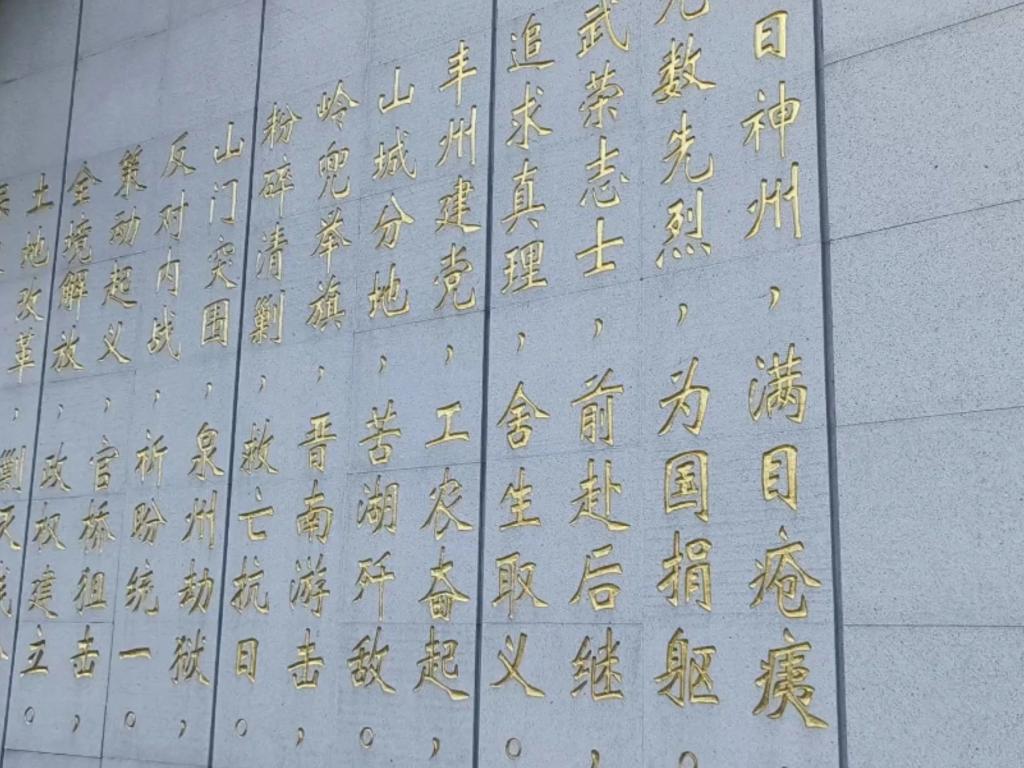 日神州,满目疮痍
数先烈,为国捐躯。
武荣志士,前赴后继,
追求真理,舍生取义。
丰州建党,工农奋起,
山城分地,苦湖歼敌。
岭兜举旗,晋南游击,
粉碎清剿,救亡抗日。
山门突围,泉州劫狱,
反对内战,祈盼统一。
策动起义,官桥狙击,
全境解放,政权建立。
土地改革,剿灭